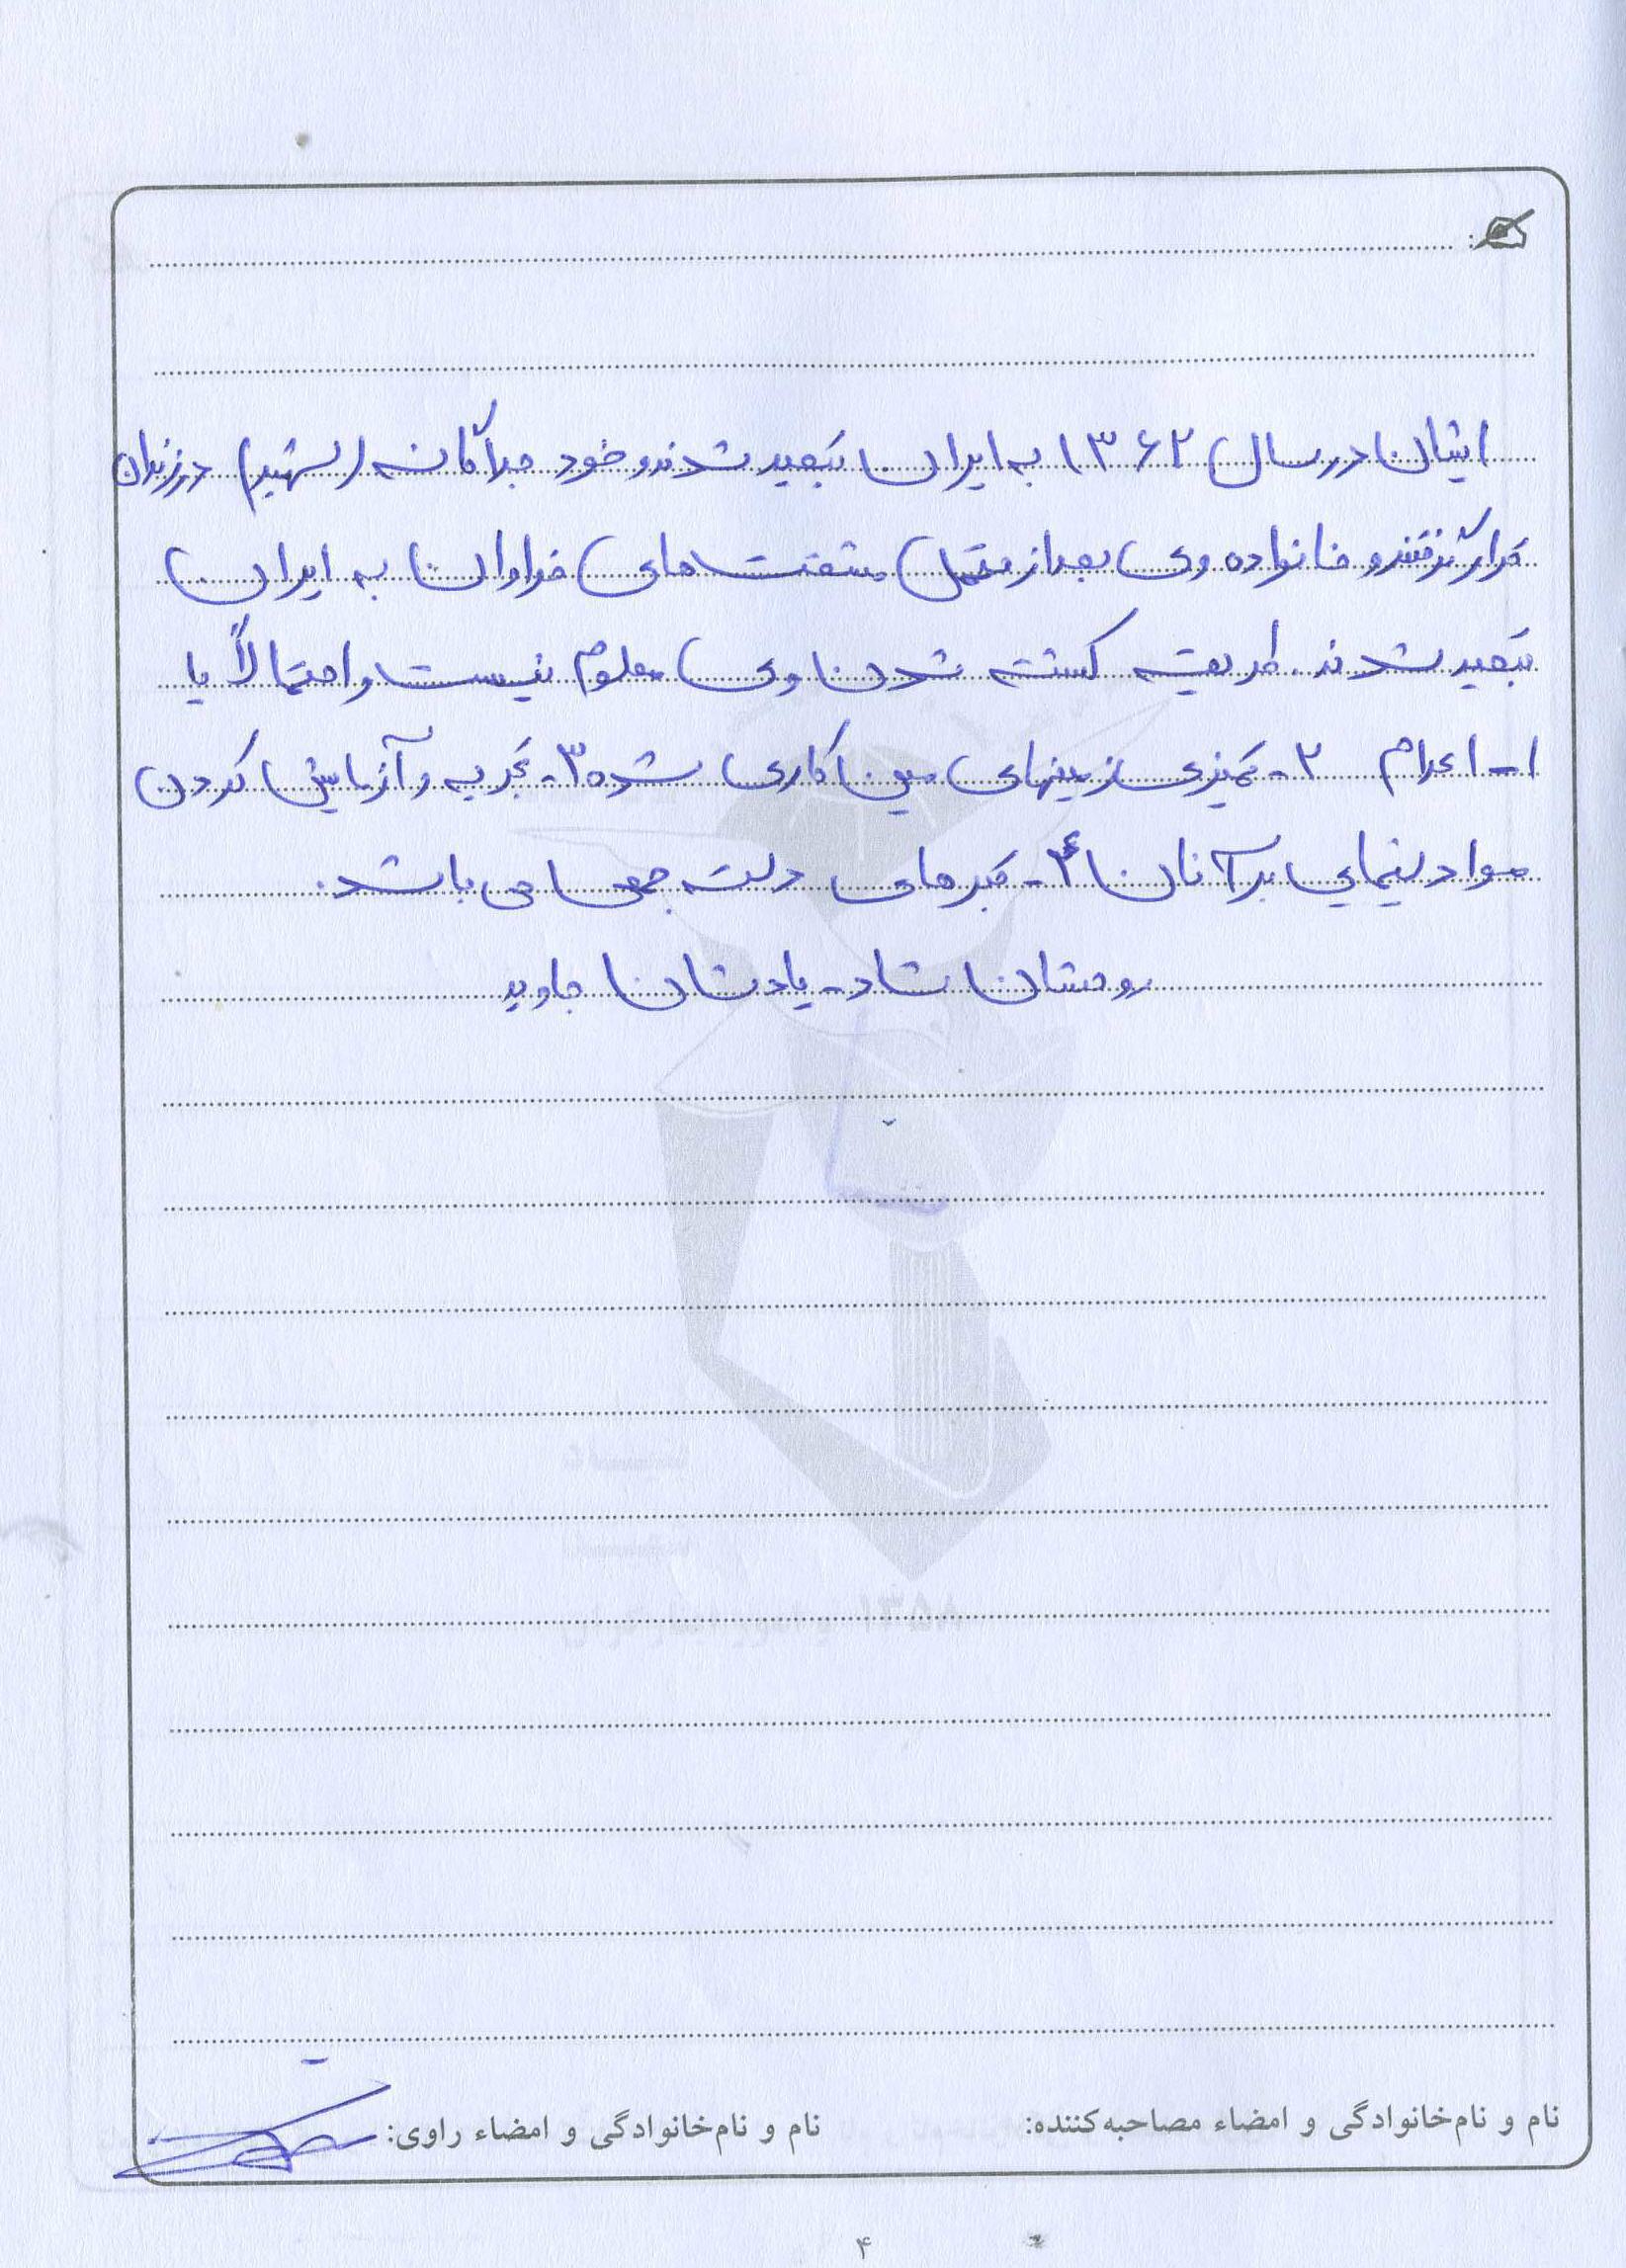 ایشان در سال ۱۳۶۲ به ایران تبعید شدند و خود جداگانه (شهید) در زندان
قرار گرفتند و خانواده وی بعد از تحمل مشقت های فراوان به ایران
تبعید شدند. طریقه کشته شدن وی معلوم نیست و احتمالاً یا
۱- اعدام ۲- تمیزی زمینهای مین کاری شده ۳- تجربه و آزمایش کردن
مواد شیمایی بر آنان ۴- قبرهای دسته جمعی می باشد.
روحشان شاد - یادشان جاوید
نام و نام‌خانوادگی و امضاء مصاحبه‌کننده: نام و نام‌خانوادگی و امضاء راوی:
۴